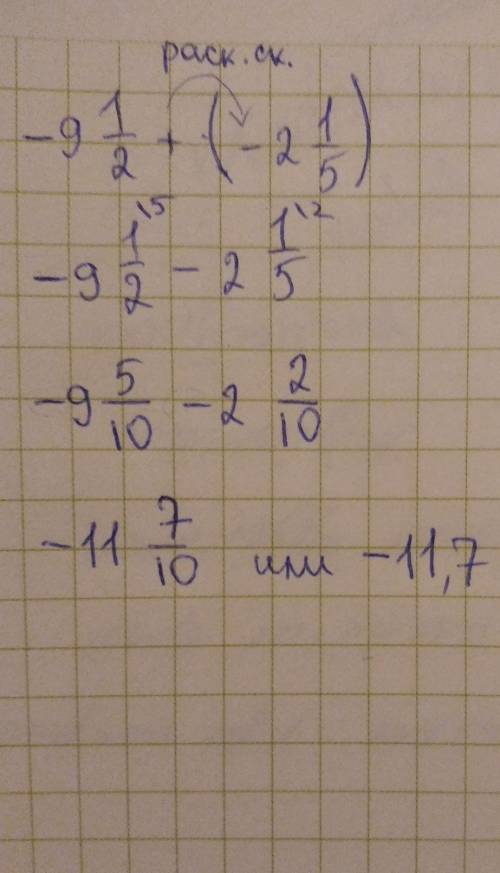 раск. ск.
-9 1/2 + (-2 1/5)
-9 1/2 \5 - 2 1/5 \2
-9 5/10 - 2 2/10
-11 7/10 или -11,7